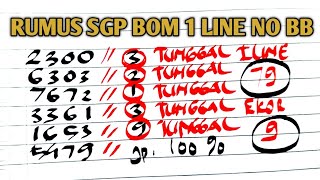 RUMUS SGP BOM 1 LINE NO BB
2300 // 3 TUNGGAL 1LINE
6303 // 2 TUNGGAL 79
7672 // 1 TUNGGAL
3361 // 3 TUNGGAL EKOR
1653 // 9 TUNGGAL 9
5479 // JP. 100 %